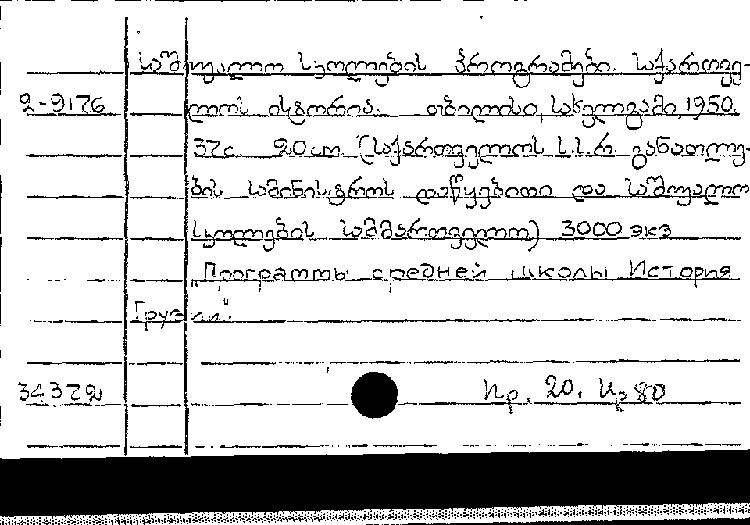 საშუალო სკოლების პროგრამები. საქართვე-
2-9176 ლოს ისტორია. თბილისი, სახელგამი, 1950.
37с 20 cm. (საქართველოს ს.ს.რ. განათლე-
ბის სამინისტროს დაწყებითი და საშუალო
სკოლების სამმართველო) 3000 экз
„Программы средней школы История
Грузии"
34372 Кр. 20.